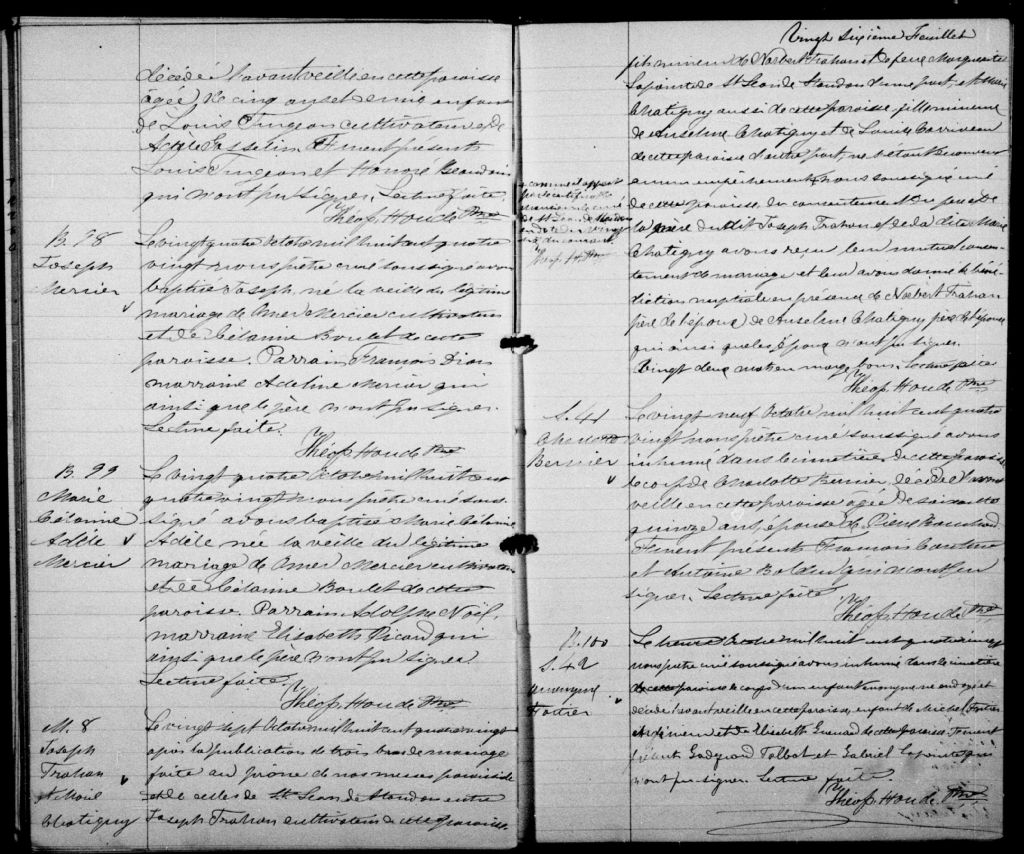 décédée l'avant veille en cette paroisse
âgée de cinq ans et demie enfant
de Louis Turgeon cultivateur et de
Adèle Gosselin. Furent présents
Louis Turgeon et Honoré Beaudoin
qui n'ont pu signer. Lecture faite.
Théop. Houde Ptre
B. 98
Joseph
Mercier
Le vingt quatre Octobre mil huit cent quatre
vingt nous prêtre curé soussigné avons
baptisé Joseph, né la veille du légitime
mariage de Omer Mercier cultivateur
et de Célanie Boulet de cette
paroisse. Parrain François Dion
marraine Adeline Mercier qui
ainsi que le père n'ont pu signer.
Lecture faite.
Théop. Houde Ptre
B. 99
Marie
Célanie
Adèle
Mercier
Le vingt quatre Octobre mil huit cent
quatre vingt nous prêtre curé sous-
signé avons baptisé Marie Célanie
Adèle née la veille du légitime
mariage de Omer Mercier cultivateur
et de Célanie Boulet de cette
paroisse. Parrain Adolphe Noël,
marraine Elisabeth Picard qui
ainsi que le père n'ont pu signer.
Lecture faite.
Théop. Houde Ptre
M. 8
Joseph
Trahan
& Marie
Chatigny
Le vingt sept Octobre mil huit cent quatre vingt
après la publication de trois bans de mariage
faite au prône de nos messes paroissiales
et de celles de St Jean de Standon entre
Joseph Trahan cultivateur de cette paroisse
Vingt sixième Feuillet
fils mineur de Norbert Trahan et de feue Marguerite
Lapointe de St Jean de Standon d'une part, et Marie
Chatigny aussi de cette paroisse, fille mineure
de Anselme Chatigny et de Louise Corriveau
de cette paroisse d'autre part, ne s'étant découvert
aucun empêchement nous soussigné curé
de cette paroisse, du consentement du père de
la père du dit Joseph Trahan et de la dite Marie
Chatigny avons reçu leur mutuel consen-
tement de mariage et leur avons donné la béné-
diction nuptiale en présence de Norbert Trahan
père de l'époux de Anselme Chatigny père de l'épouse
qui ainsi que les époux n'ont pu signer.
Vingt deux mots en marge bons. Lecture faite
Théop. Houde Ptre
comme il appert
par le certificat de
monsieur le curé
de St Jean de Standon
en date du vingt
du courant.
Théop. H. Ptre
S. 41
Charlotte
Bernier
Le vingt neuf Octobre mil huit cent quatre
vingt nous prêtre curé soussigné avons
inhumé dans le cimetière de cette paroisse
le corps de Charlotte Bernier, décédée l'avant
veille en cette paroisse âgée de soixante
quinze ans, épouse de Pierre
Furent présents François Couture
et Antoine Bolduc qui n'ont pu
signer. Lecture faite
Théop. Houde Ptre
B. 100
S. 42
anonyme
Fortier
Le trente Octobre mil huit cent quatre vingt
nous prêtre curé soussigné avons inhumé dans le cimetière
de cette paroisse le corps d'un enfant anonyme né ondoyé et
décédé l'avant veille en cette paroisse, enfant de Michel Fortier
et de Elisabeth de cette paroisse. Furent
présents Talbot et Gabriel Lapointe qui
n'ont pu signer. Lecture faite.
Théop. Houde Ptre